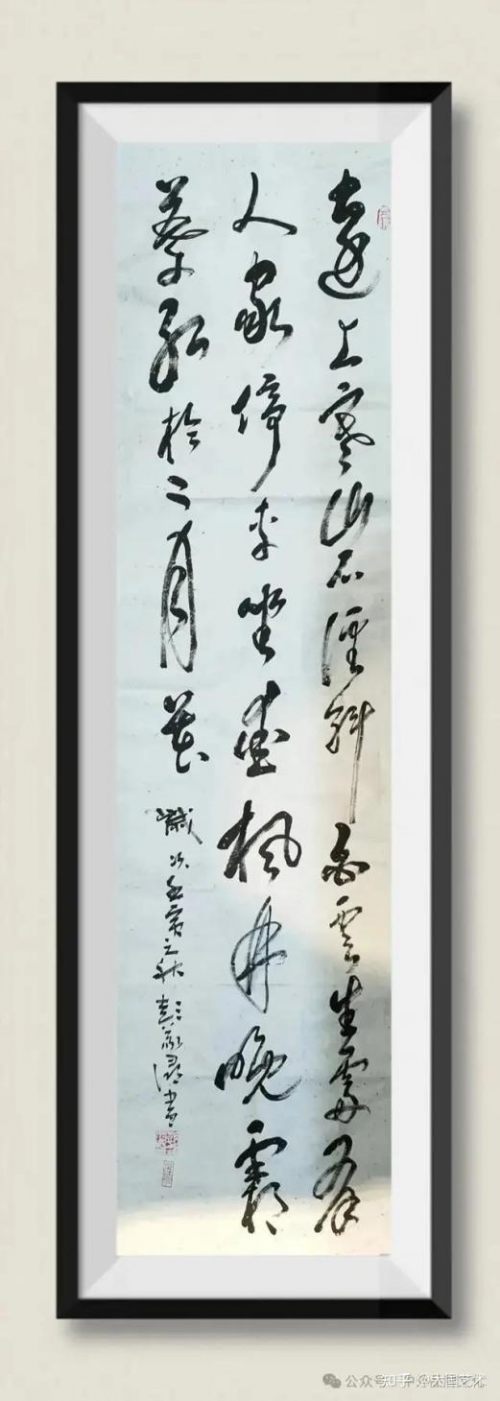 遠上寒山石徑斜白雲生處有
人家停車坐愛楓林晚霜
葉紅於二月花
歲次壬寅之秋彭書
公众号
知乎